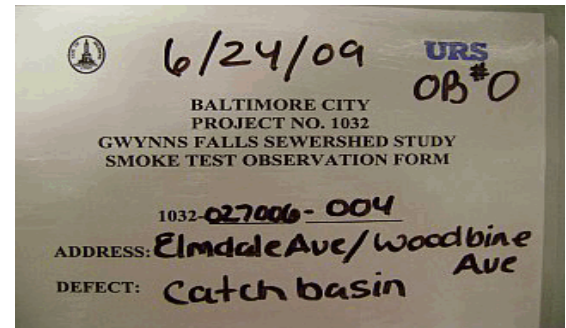 6/24/09
URS
OB#0
BALTIMORE CITY
PROJECT NO. 1032
GWYNNS FALLS SEWERSHED STUDY
SMOKE TEST OBSERVATION FORM
1032-027006-004
ADDRESS: Elmdale Ave/Woodbine
Ave
DEFECT: Catch basin